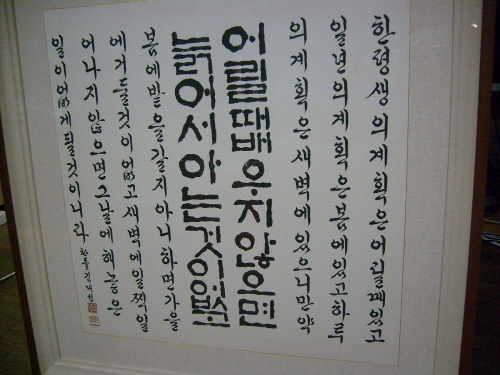 한평생의계획은어릴때있고
일년의계획은봄에있고하루
의계획은새벽에있으니만약
어릴때우지않으면
늙어서아는것이없고
봄에밭을갈지아니하면가을
에거둘것이없고새벽에일찍일
어나지않으면그날에해놓은
일이없게될것이니라